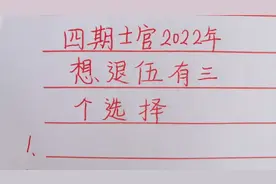 四期士官2022年
想退伍有三
个选择
1、